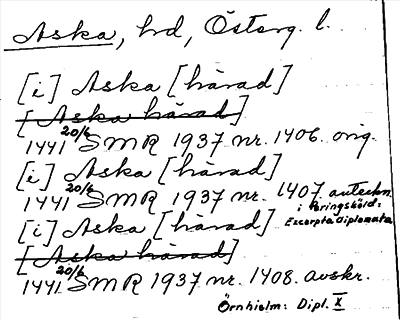 Aska, hd, Österg. l.
[i] Aska [härad]
[Aska härad]
1441 20/6 SMR 1937 nr. 1406 orig.
[i] Aska [härad]
1441 20/6 SMR 1937 nr. 1407 anteckn.
i Peringsköld:
[i] Aska [härad] Excerpta Diplomata
[Aska härad]
1441 20/6 SMR 1937 nr. 1408. avskr.
Örnhielm: Dipl. X